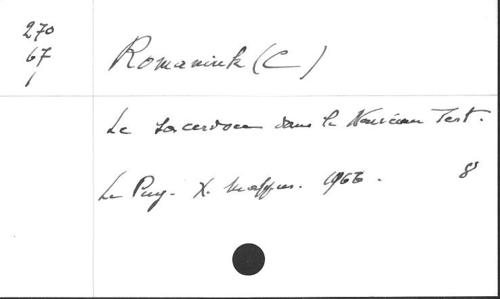 270
67
1
Romaniuk (C)
Le Sacerdoce dans le Nouveau Test.
Le Puy. X. Mappus. 1966.
8°